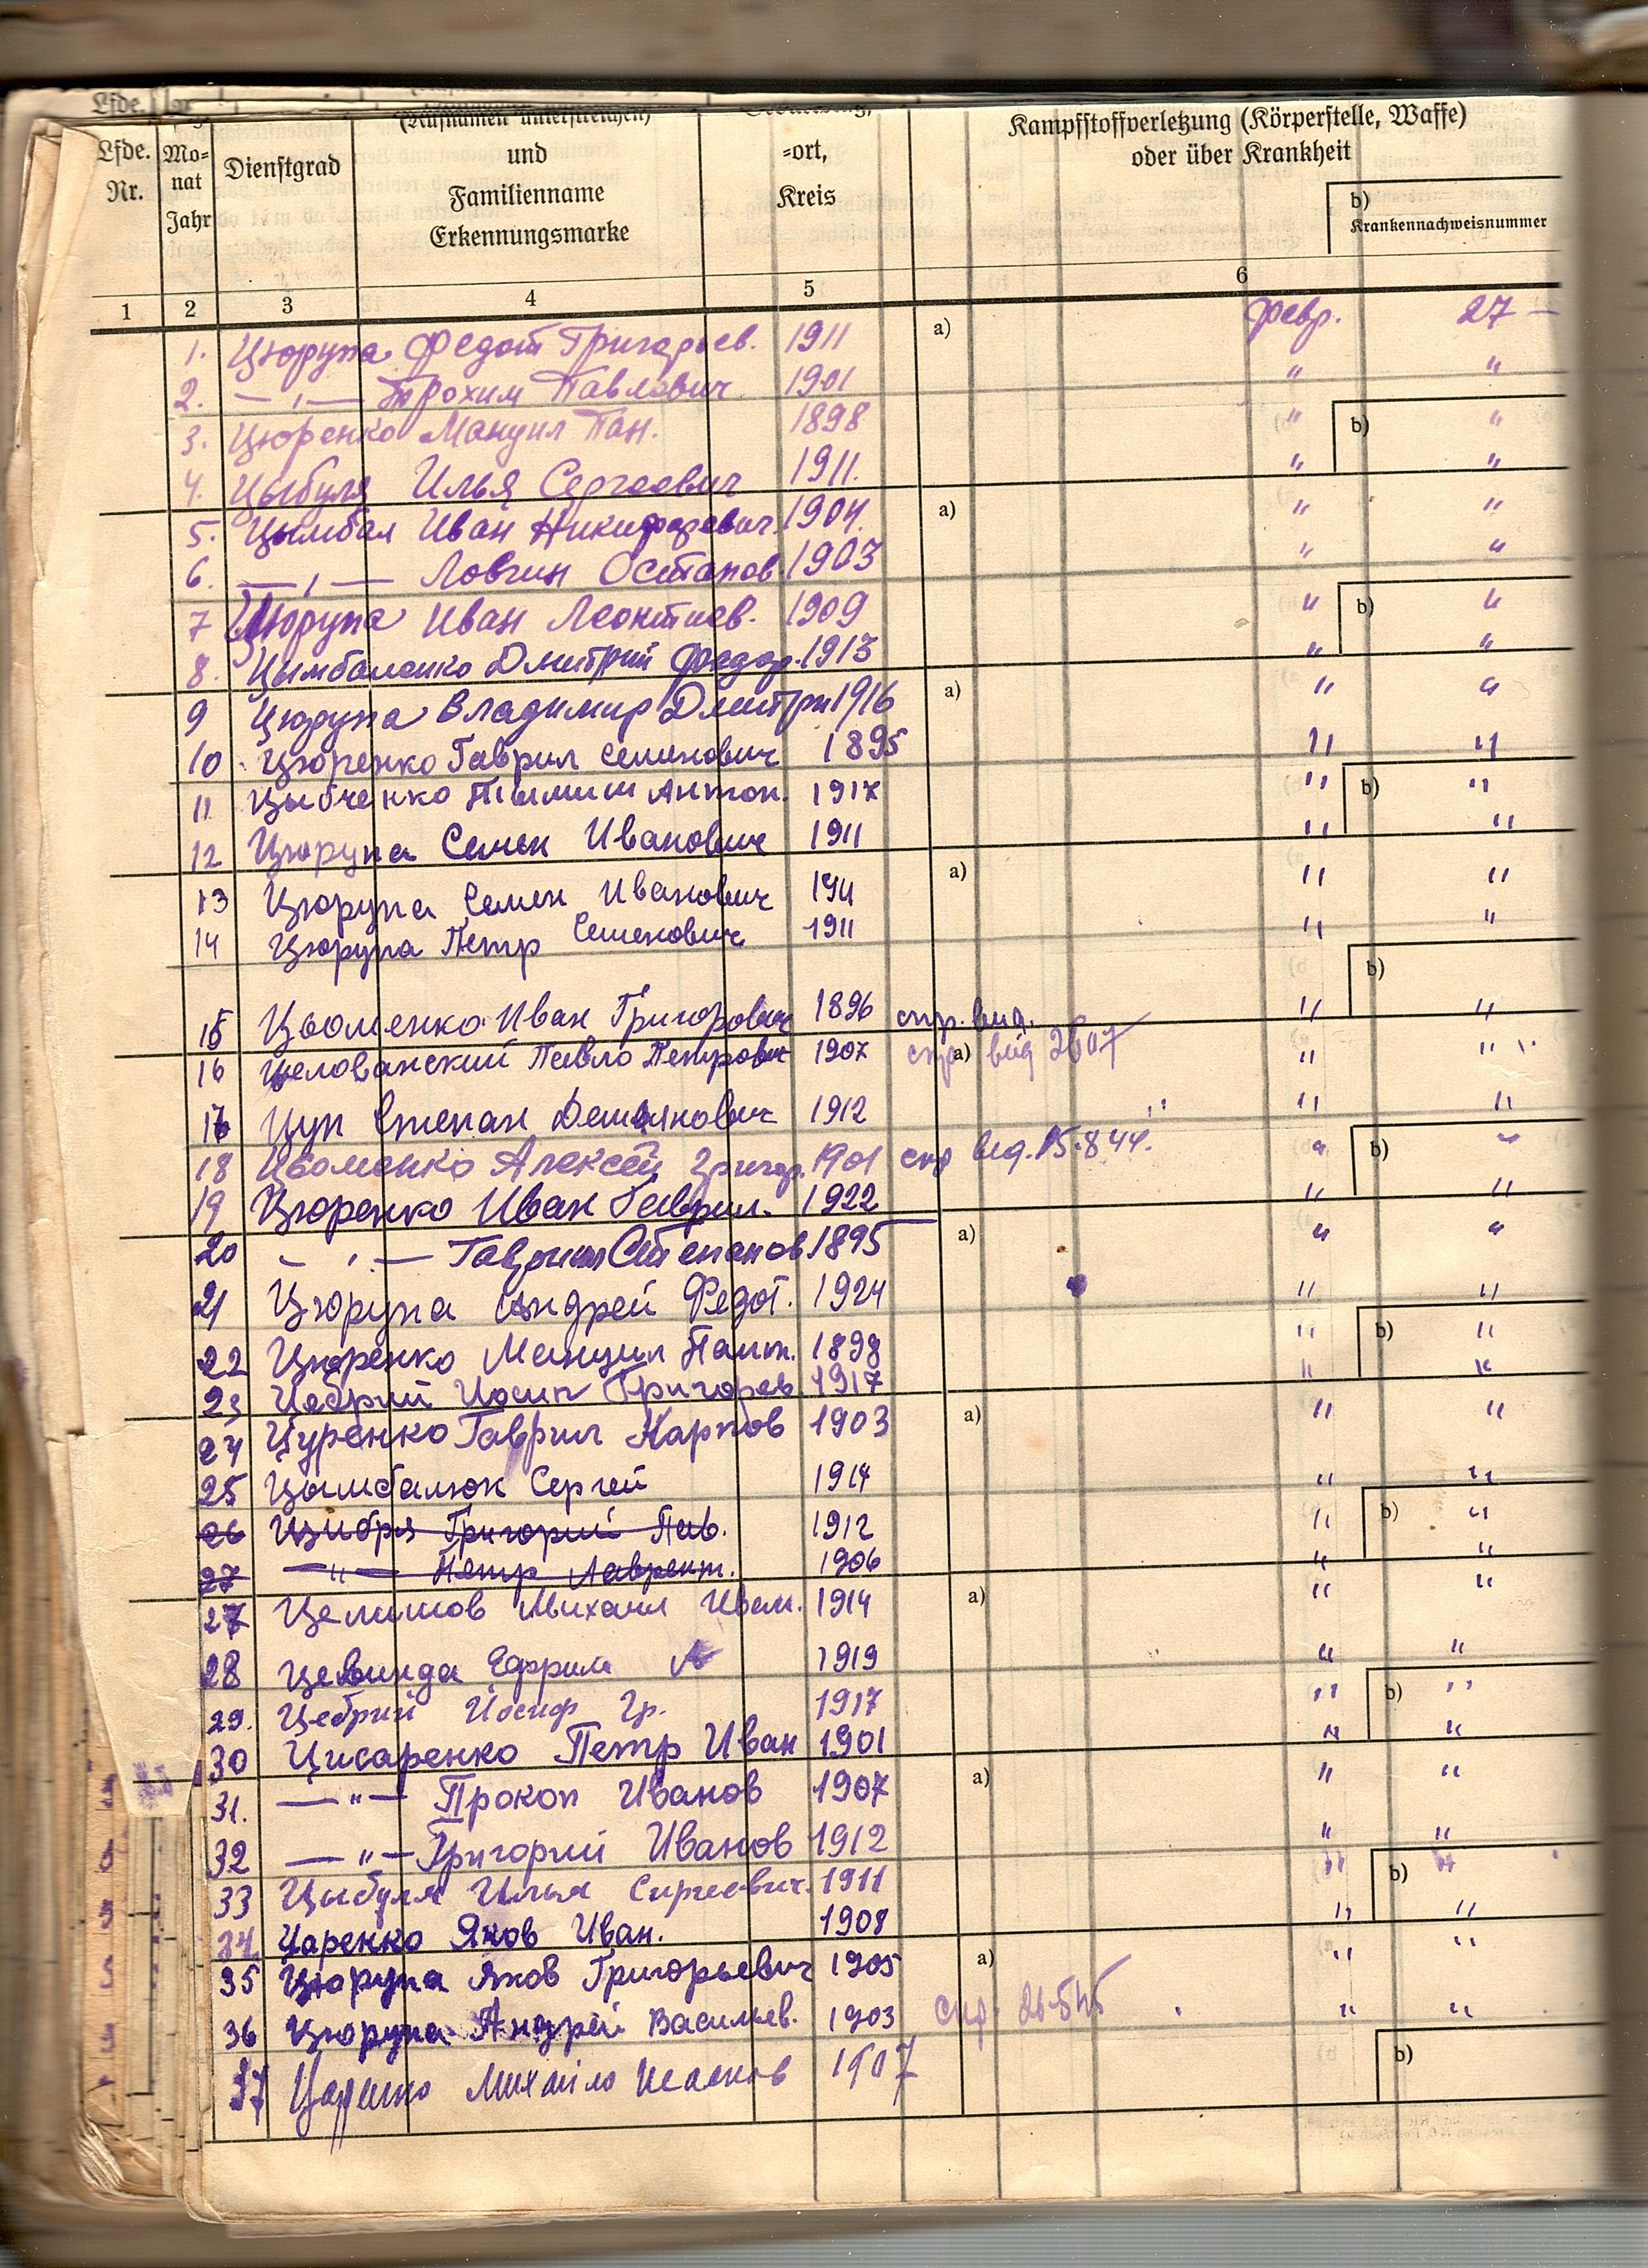 Lfde.
(Rufnamen unterstreichen)
Kampfstoffverletzung (Körperstelle, Waffe)
oder über Krankheit
Lfde. Nr.
Mo-
nat
Jahr
Dienstgrad
und
Familienname
Erkennungsmarke
-ort,
Kreis
b)
Krankennachweisnummer
1 2 3 4 5 6
1. Цюрупа Федот Григорьев. 1911 a) февр. 27 —
2. — „ — Трохим Павлович 1901 " "
3. Цюренко Мануил Пан. 1898 " b) "
4. Цыбуля Илья Сергеевич 1911. " "
5. Цымбал Иван Никифорович 1904. a) " "
6. — „ — Ловгин Остапов 1903 " "
7 Цюрупа Иван Леонтиев. 1909 " b) "
8. Цымбаленко Дмитрий Федор. 1913 " "
9 Цюрупа Владимир Дмитри 1916 a) " "
10 Цюренко Гаврил Семенович 1895 " "
11 Цыбченко Антон. 1917 " b) "
12 Цюрупа Семен Иванович 1911 " "
13 Цюрупа Семен Иванович 1911 a) " "
14 Цюрупа Петр Семенович 1911 " "
b)
15 Цьоменко Иван Григорович 1896 спр. вид. " "
16 Целованский Павло Петрович 1907 спр. a) вид " "
17 Цуп Степан Демьянович 1912 " "
18 Цьоменко Алексей Григор. 1901 спр вид. 15.8.44. " b) "
19 Цюренко Иван Гаврил. 1922 " "
20 — „ — Гаврил Степанов 1895 a) " "
21 Цюрупа Андрей Федот. 1924 " "
22 Цюренко Мануил Пант. 1898 " b) "
23 Цебрий Иосип Григорьев 1917 " "
24 Цуренко Гаврил Карпов 1903 a) " "
25 Цымбалюк Сергей 1914 " "
26 Цибря Григорий Пав. 1912 " b) "
27 — „ — Петр Лаврент. 1906 " "
27 Целишов Михаил Иван. 1914 a) " "
28 Ефрим 1919 " "
29. Цебрий Иосиф Гр. 1917 " b) "
30 Цисаренко Петр Иван 1901 " "
31. — „ — Прокоп Иванов 1907 a) " "
32 — „ — Григорий Иванов 1912 " "
33 Цыбуля Илья Сиргеевич. 1911 " b) "
34. Царенко Яков Иван. 1908 " "
35 Цюрупа Яков Григорьевич 1905 a) " "
36 Цюрупа Андрей Васильев. 1903 спр. " "
37 Михайло 1907 b)